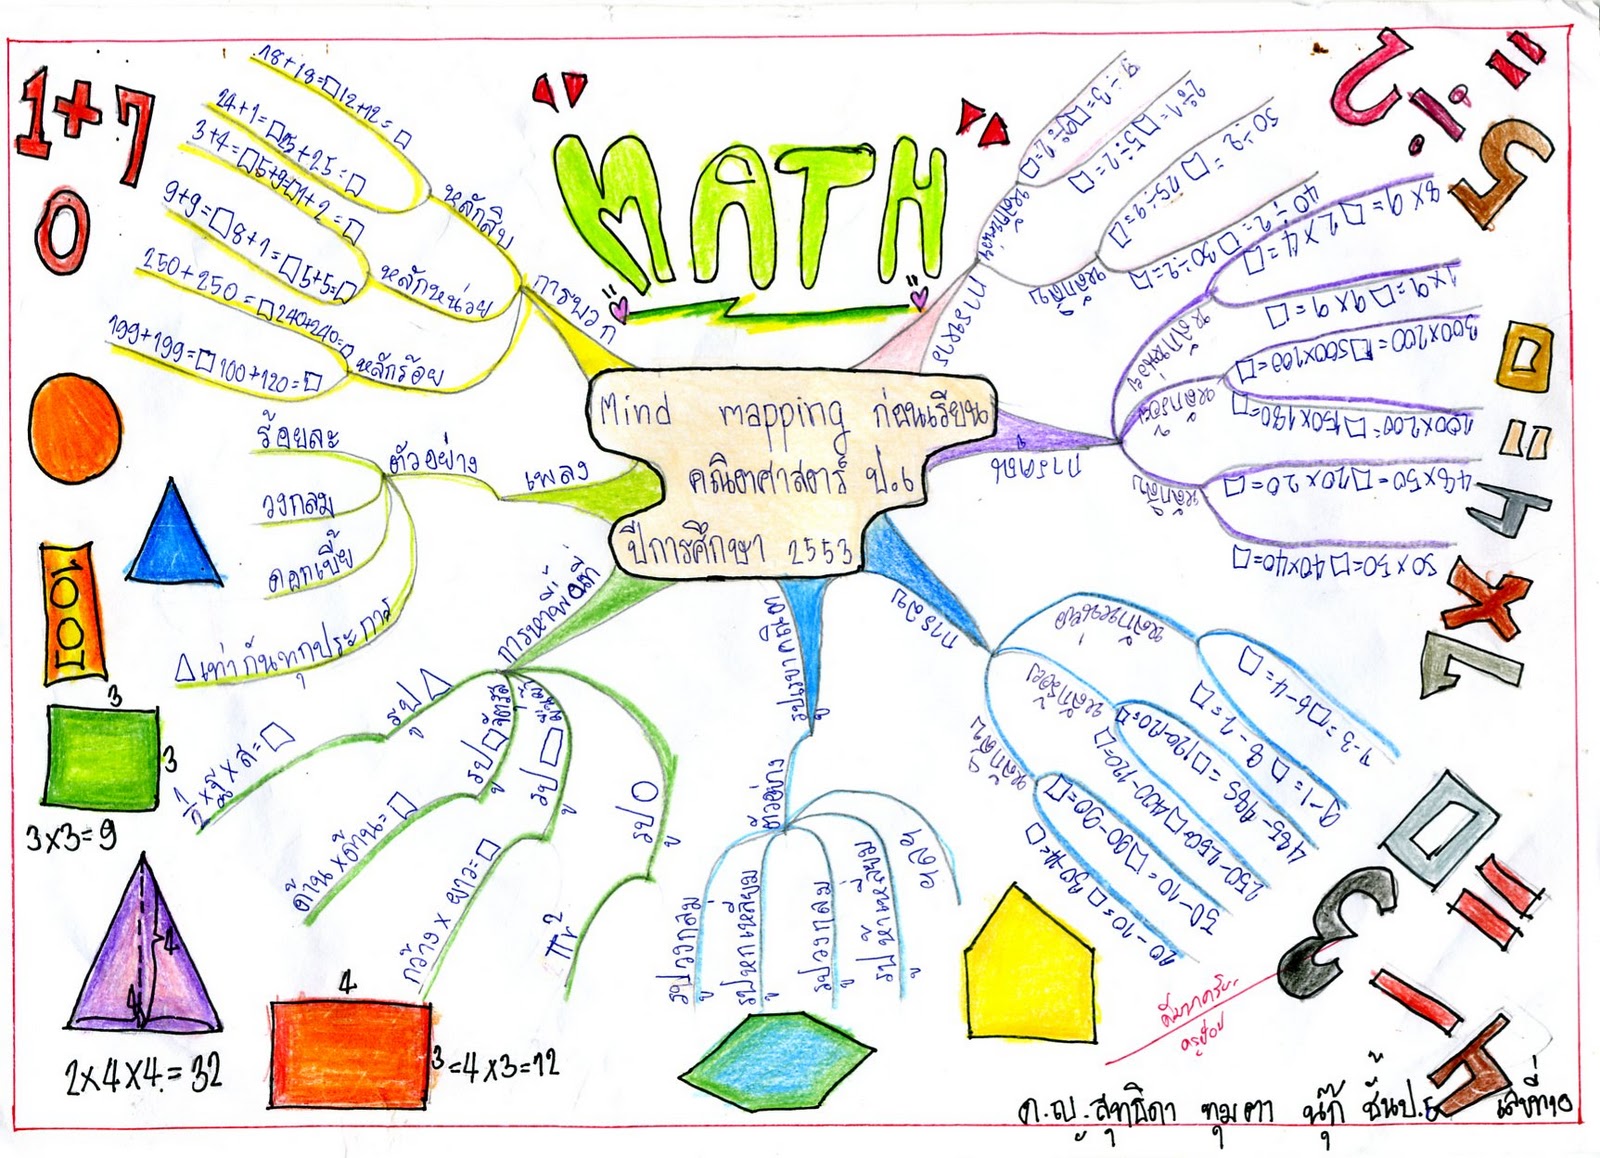 MATH
Mind mapping ก่อนเรียน
คณิตศาสตร์ ป.6
ปีการศึกษา 2553
1+7
0
การบวก
หลักสิบ
18+18=□ 12+12=□
24+1=□ 25+25=□
หลักหน่วย
3+4=□ 5+9=□ 1+2=□
9+9=□ 8+1=□ 5+5=□
หลักร้อย
250+250=□ 240+240=□
199+199=□ 100+120=□
เพลง
ตัวอย่าง
ร้อยละ
วงกลม
ดอกเบี้ย
△เท่ากันทุกประการ
การหาพื้นที่
รูป △
½×ฐ×ส=□
รูป □จัตุรัส
ด้าน×ด้าน=□
รูป ▭
กว้าง × ยาว=□
รูป ○
πr²
รูปเรขาคณิต
ตัวอย่าง
รูปวงกลม
รูปหกเหลี่ยม
รูปวงกลม
รูปห้าเหลี่ยม
ฯลฯ
การลบ
หลักหน่วย
7-3=□ 6-4=□
9-1=□ 8-7=□
หลักร้อย
485-485=□ 120-120=□
250-250=□ 400-120=□
หลักสิบ
50-10=□ 90-90=□
20-10=□
การคูณ
หลักหน่วย
8×9=□ 2×4=□
1×9=□ 9×9=□
หลักร้อย
300×200=□ 500×100=□
100×200=□ 150×150=□
หลักสิบ
48×50=□ 20×20=□
50×50=□ 40×40=□
การหาร
หลักหน่วย
9÷3=□
5÷2=□
หลักสิบ
50÷2=□ 25÷9=□
40÷2=□ 30÷2=□
100
3
3
3×3=9
4
4
2×4×4=32
4
3
=4×3=12
ด.ญ.สุทธิดา ทุมตา นุ๊ก ชั้นป.6 เลขที่10